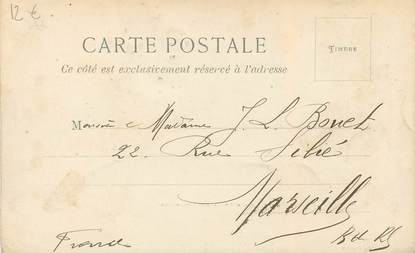 12 €
CARTE POSTALE
TIMBRE
Ce côté est exclusivement réservé à l'adresse
Monsieur & Madame J. L. Bonet
22. Rue Silvé
Marseille
France B.d. R.